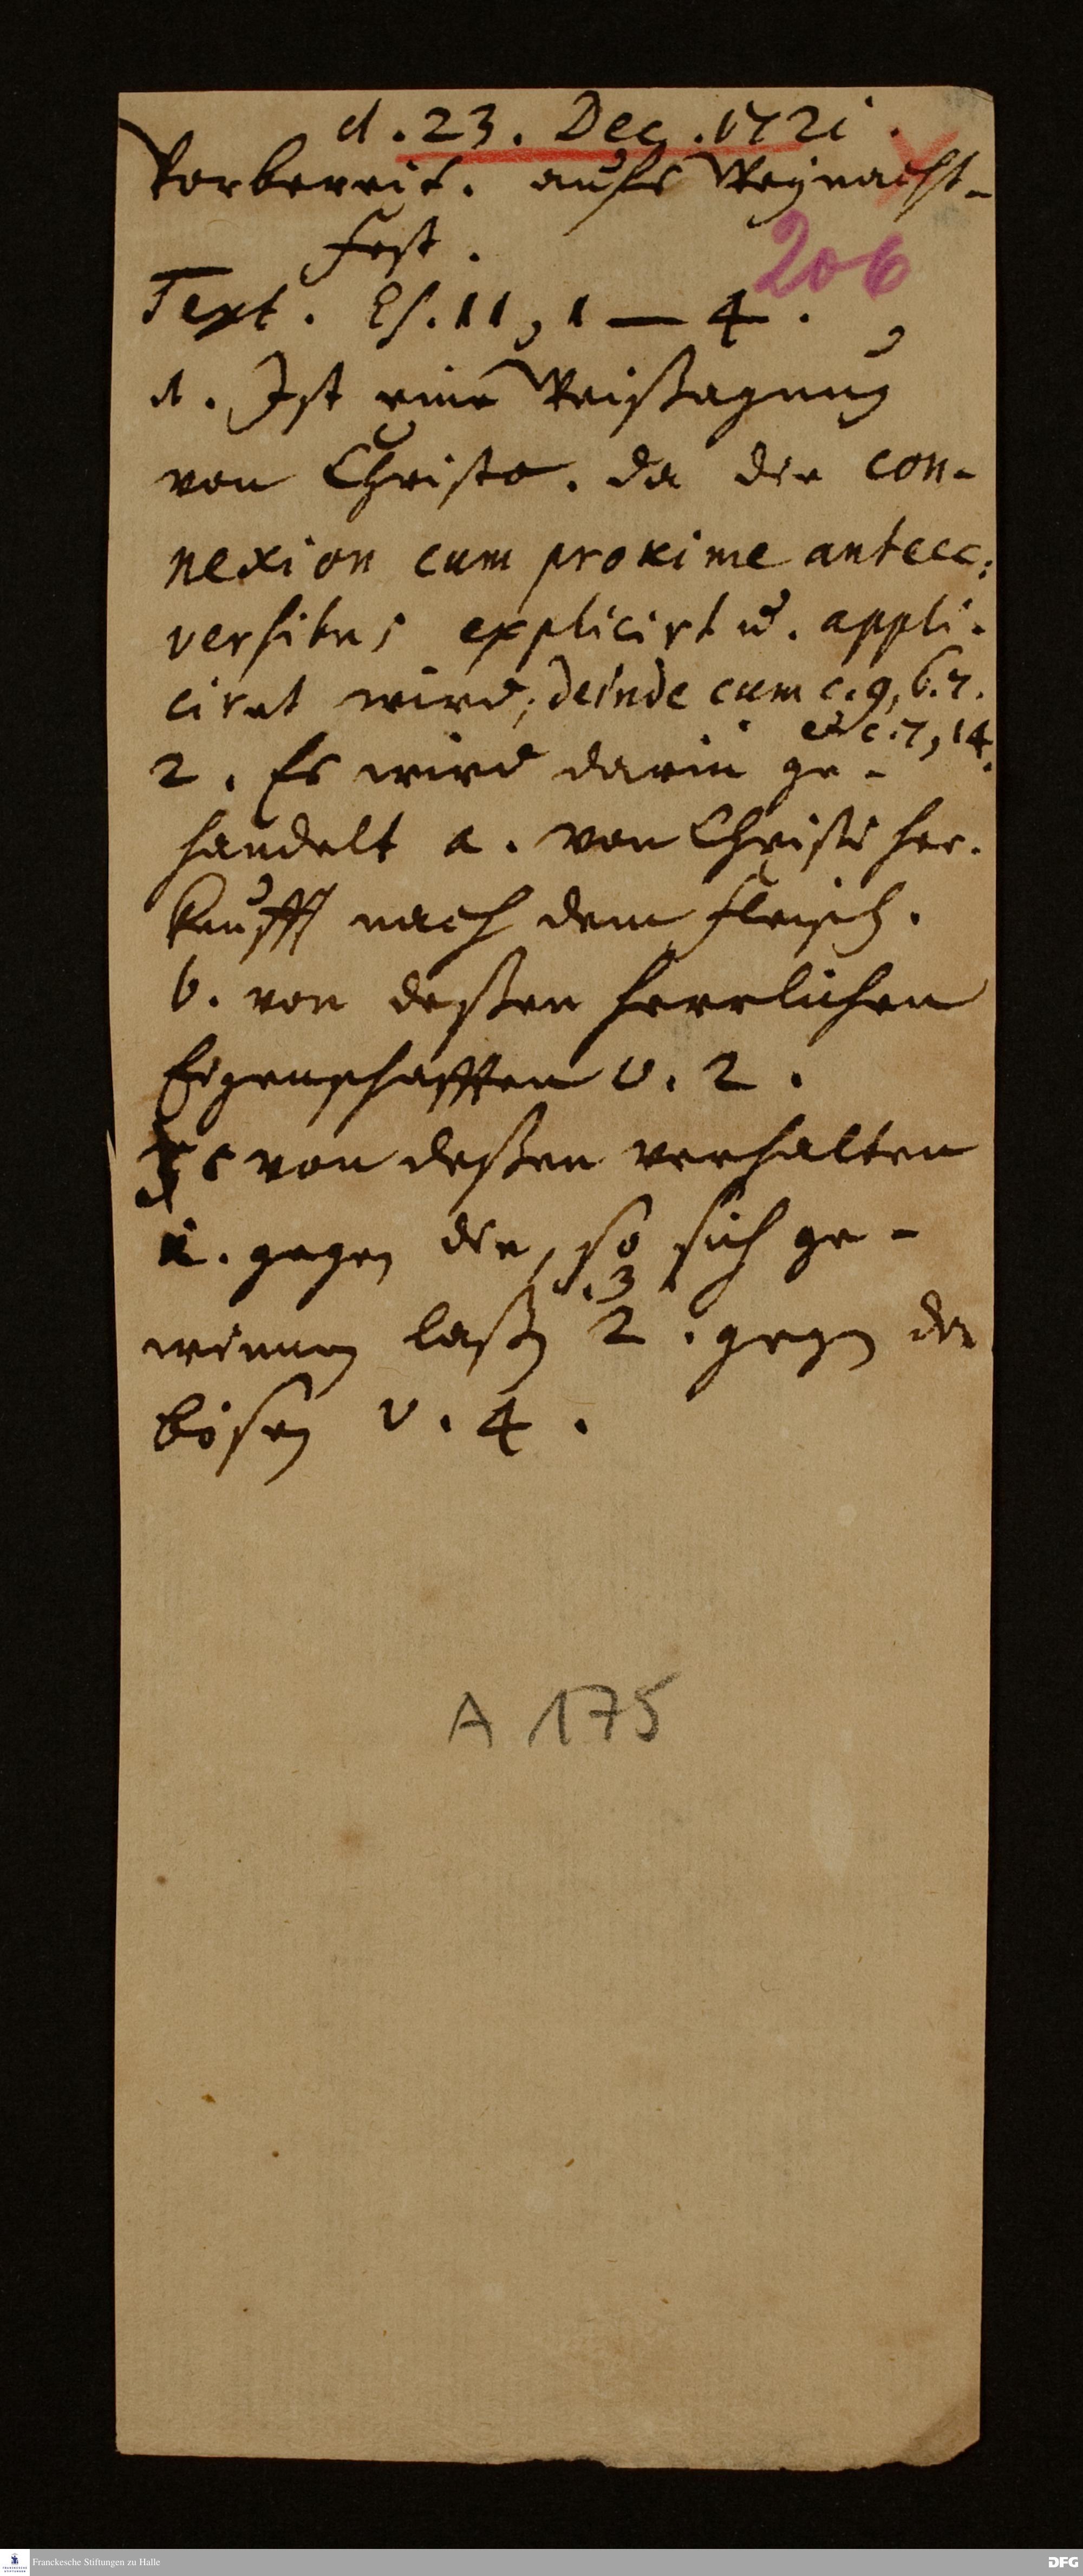 d. 23. Dec. 1721.
Vorbereit. aufs Weynacht-
Fest.
206
Text. Es. 11, 1 — 4.
1. Ist eine Weißagung
von Christo. da die con-
nexion cum proxime antecc:
versibus explicirt u. appli-
ciret wird; deinde cum c. 9, 6. 7.
et c. 7, 14.
2. Es wird darin ge-
handelt a. von Christi her-
kunfft nach dem Fleisch.
b. von deßen herrlichen
Eigenschafften v. 2.
c von deßen verhalten
1. gegen die, so sich ge-
v. 3
winnen laßen 2. gegen die
bösen v. 4.
A 175
Franckesche Stiftungen zu Halle
DFG